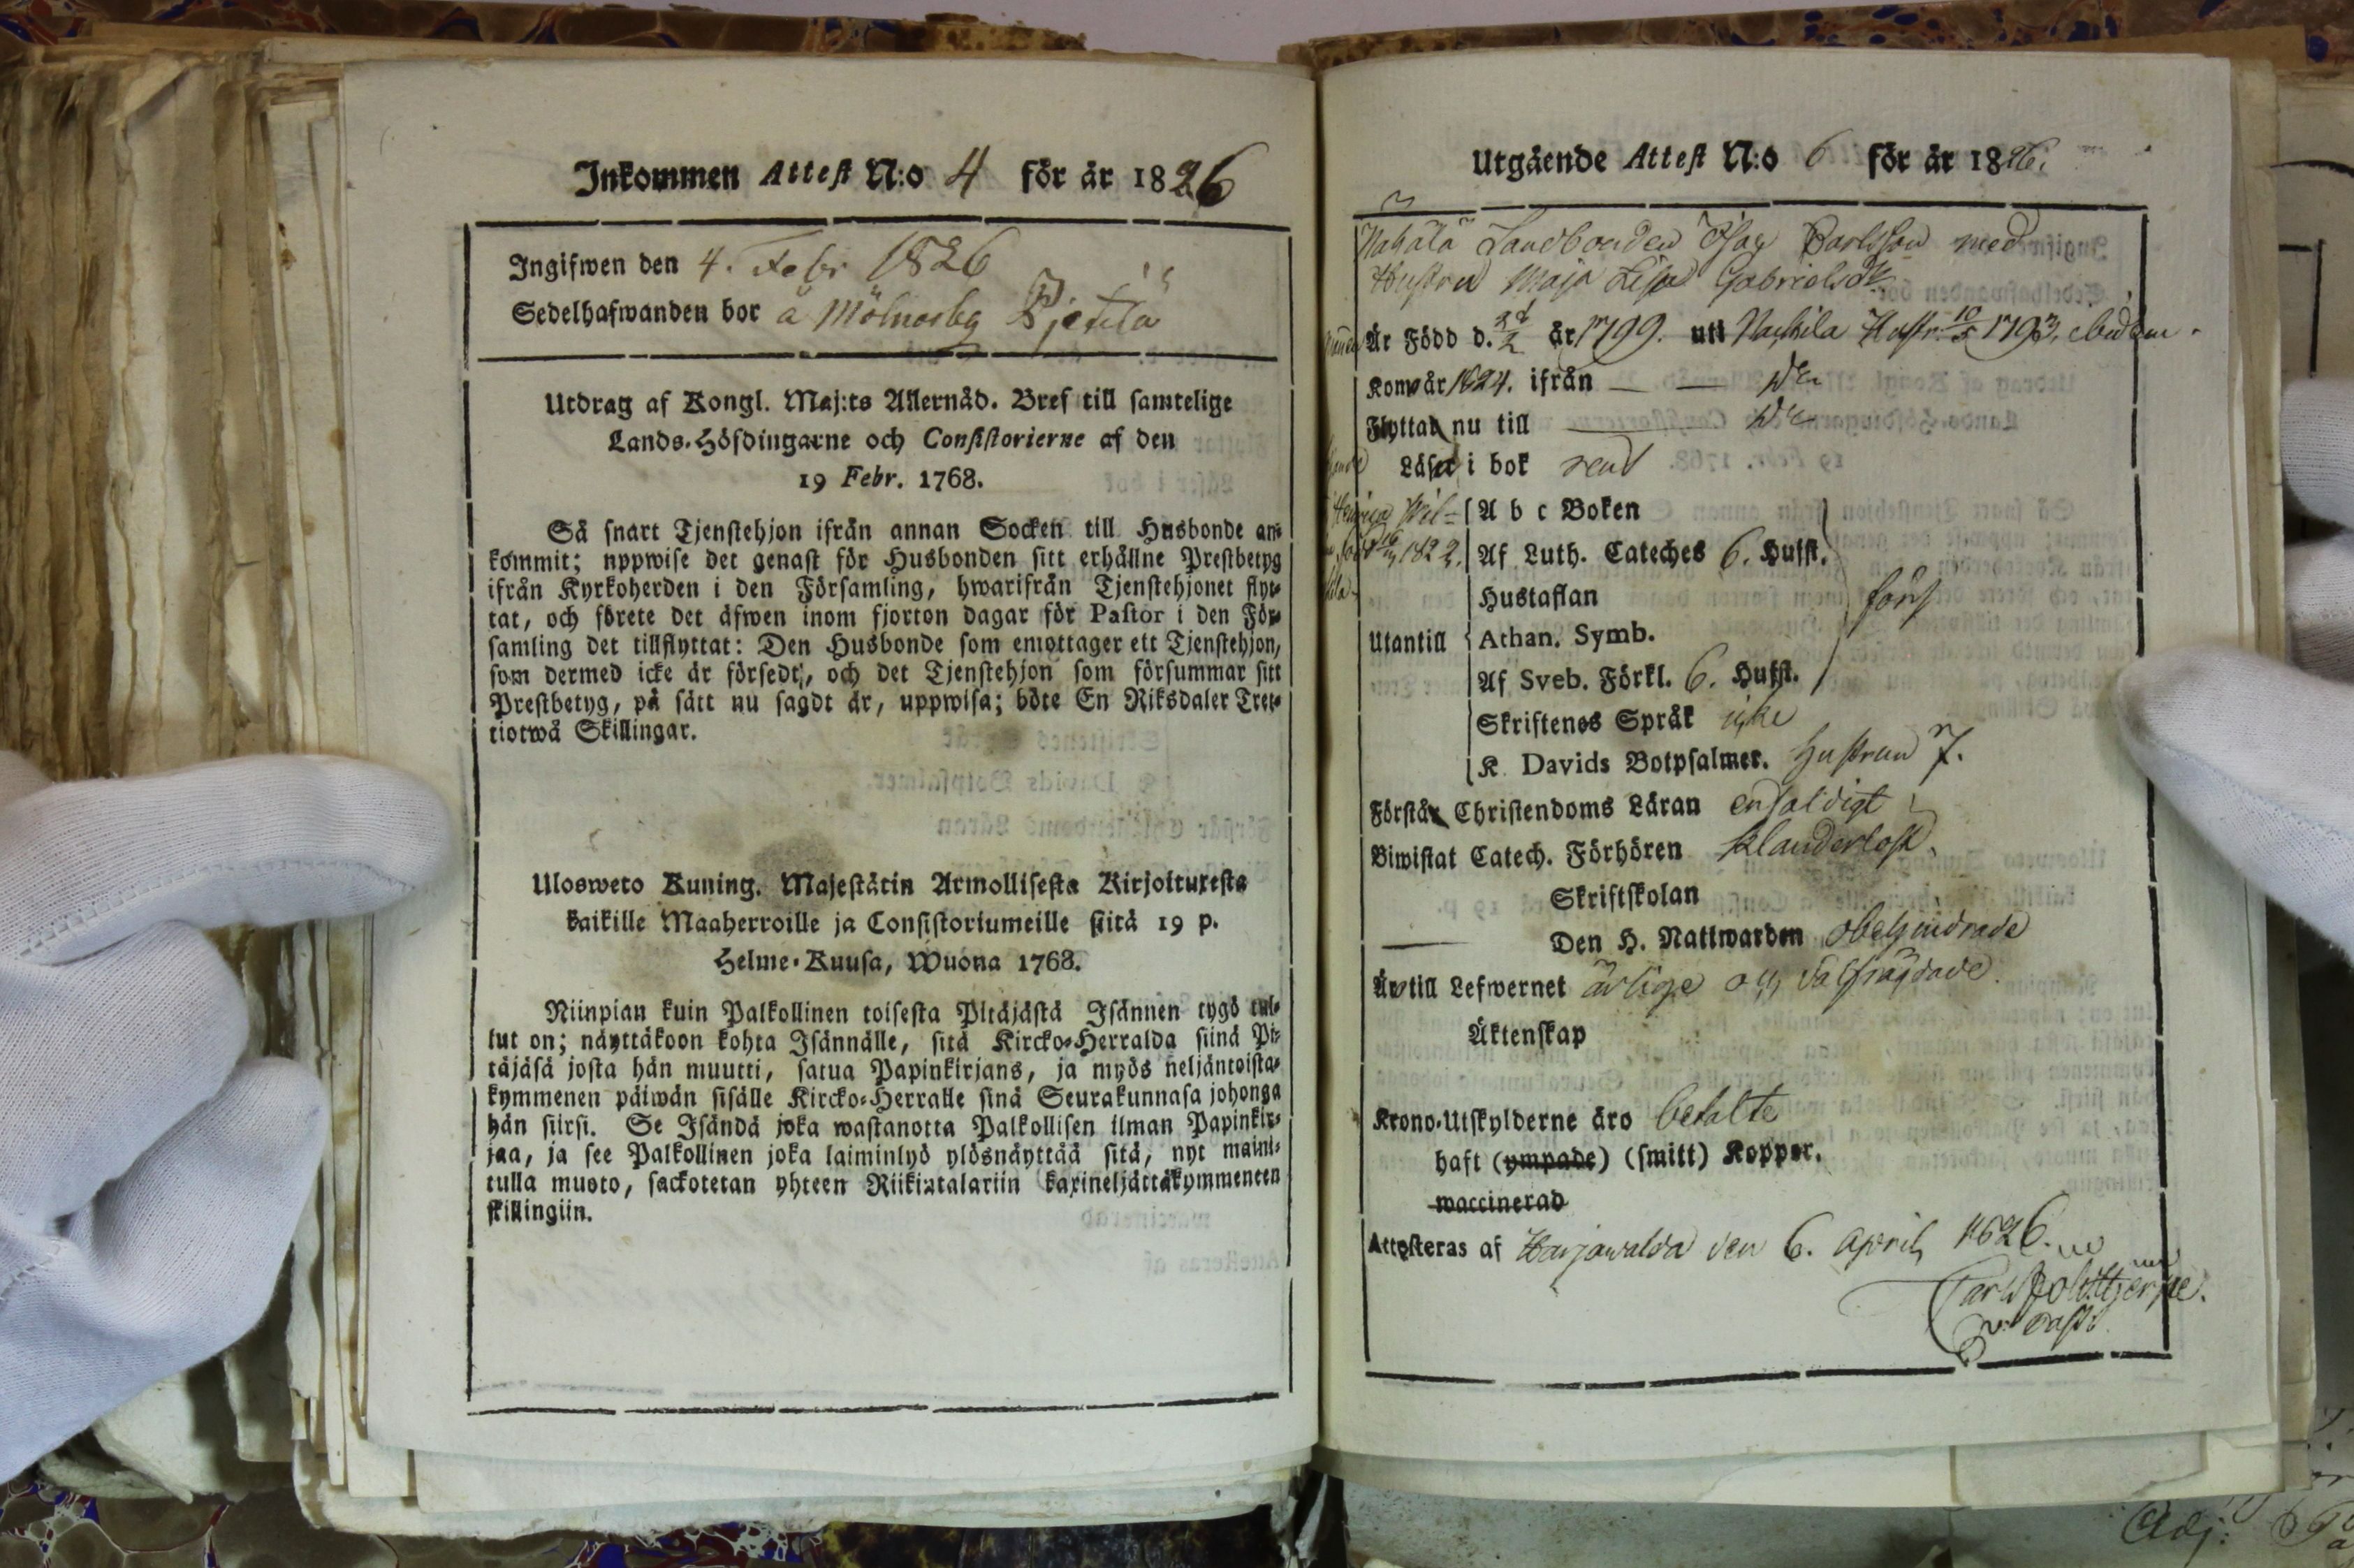 Inkommen Attest N:o 4 för år 1826
Ingifwen den 4. Febr 1826
Sedelhafwanden bor å
Utdrag af Kongl. Maj:ts Allernåd. Bref till samtelige
Lands-Höfdingarne och Consistorierne af den
19 Febr. 1768.
Så snart Tjenstehjon ifrån annan Socken till Husbonde an-
kommit; nppwise det genast för Husbonden sitt erhållne Prestbetyg
ifrån Kyrkoherden i den Församling, hwarifrån Tjenstehjonet flyt-
tat, och förete det äfwen inom fjorton dagar för Pastor i den För-
samling det tillflyttat: Den Husbonde som emottager ett Tjenstehjon,
som dermed icke är försedt, och det Tjenstehjon som försummar sitt
Prestbetyg, på sätt nu sagdt är, uppwisa; böte En Riksdaler Tret-
tiotwå Skillingar.
Ulosweto Kuning. Majestätin Armollisesta Kirjoituxesta
kaikille Maaherroille ja Consistoriumeille siitä 19 p.
Helme-Kuusa, Wuona 1768.
Niinpian kuin Palkollinen toisesta Pitäjästä Isännen tygö tul-
lut on; näyttäkoon kohta Isännälle, sitä Kircko-Herralda siinä Pi-
täjäsä josta hän muutti, satua Papinkirjans, ja myös neljäntoista-
kymmenen päiwän sisälle Kircko-Herralle sinä Seurakunnasa johonga
hän siirsi. Se Isändä joka wastanotta Palkollisen ilman Papinkir-
jaa, ja see Palkollinen joka laiminlyö ylösnäyttää sitä, nyt maini-
tulla muoto, sackotetan yhteen Riikintalariin kaxineljättäkymmeneen
skillingiin.
Utgående Attest N:o 6 för år 1826.
Landbonden Isac Carlsson med
Hustru Maja Lisa Gabrielsdr
Är Född d. år 1799. uti Hustr. 10/5 1793, ibidem.
Kom år 1824. ifrån
Flyttar nu till
Läser i bok rent
A b c Boken
1822. Af Luth. Cateches 6. Hufst.
Hustaflan först
Utantill Athan. Symb.
Af Sveb. Förkl. 6. Hufst.
Skriftenes Språk icke
K. Davids Botpsalmer. hustrun 7.
Förstår Christendoms Läran enfaldigt
Biwistat Catech. Förhören klanderlöst.
Skriftskolan
Den H. Nattwarden obehindrade
Är till Lefwernet ärlige och välfrägdade.
Äktenskap
Krono-Utskylderne äro betalte
haft (ympade) (smitt) Koppor.
waccinerad
Attesteras af Harjawalda den 6. April 1826.
Adj: